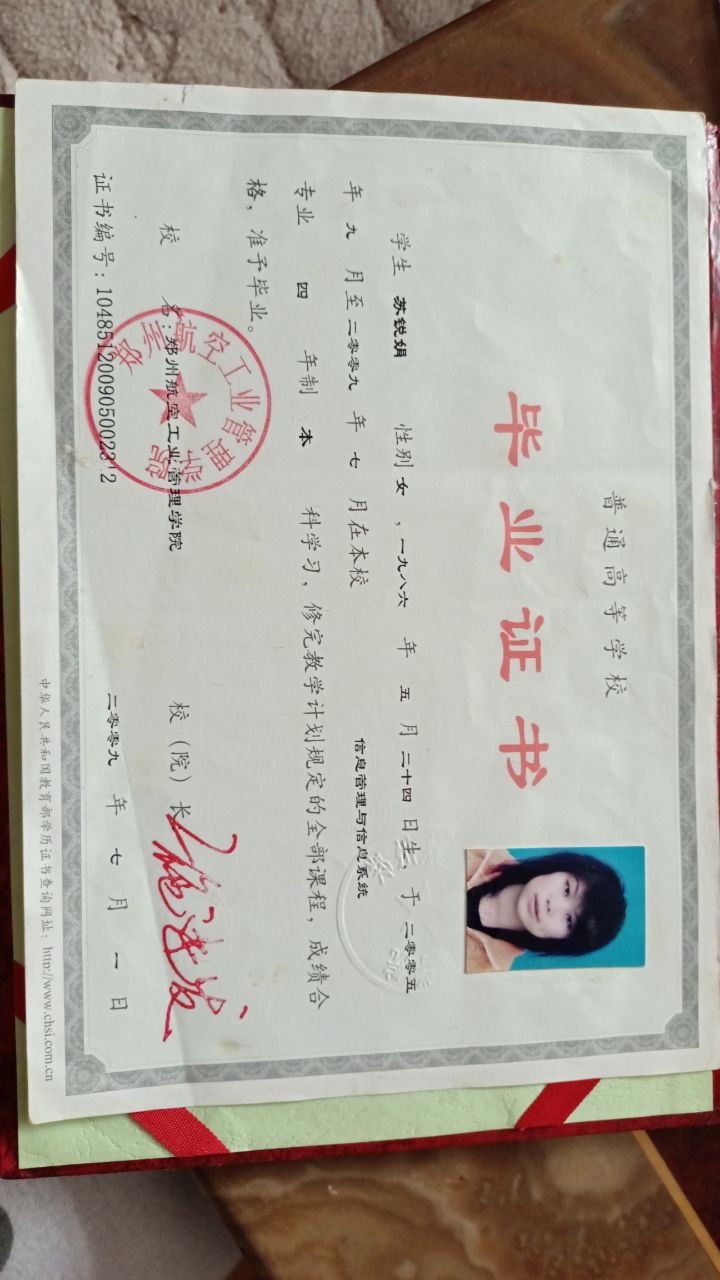 普通高等学校
毕业证书
学生 苏锐娟 性别 女 ，一九八六 年 五 月 二十四 日生，于 二零零五
年 九 月至 二零零九 年 七 月在本校 信息管理与信息系统
专业 四 年制 本 科学习，修完教学计划规定的全部课程，成绩合
格，准予毕业。
校 名：郑州航空工业管理学院
校（院）长
郑州航空工业管理学院
二零零九 年 七 月 一 日
中华人民共和国教育部学历证书查询网址：http://www.chsi.com.cn